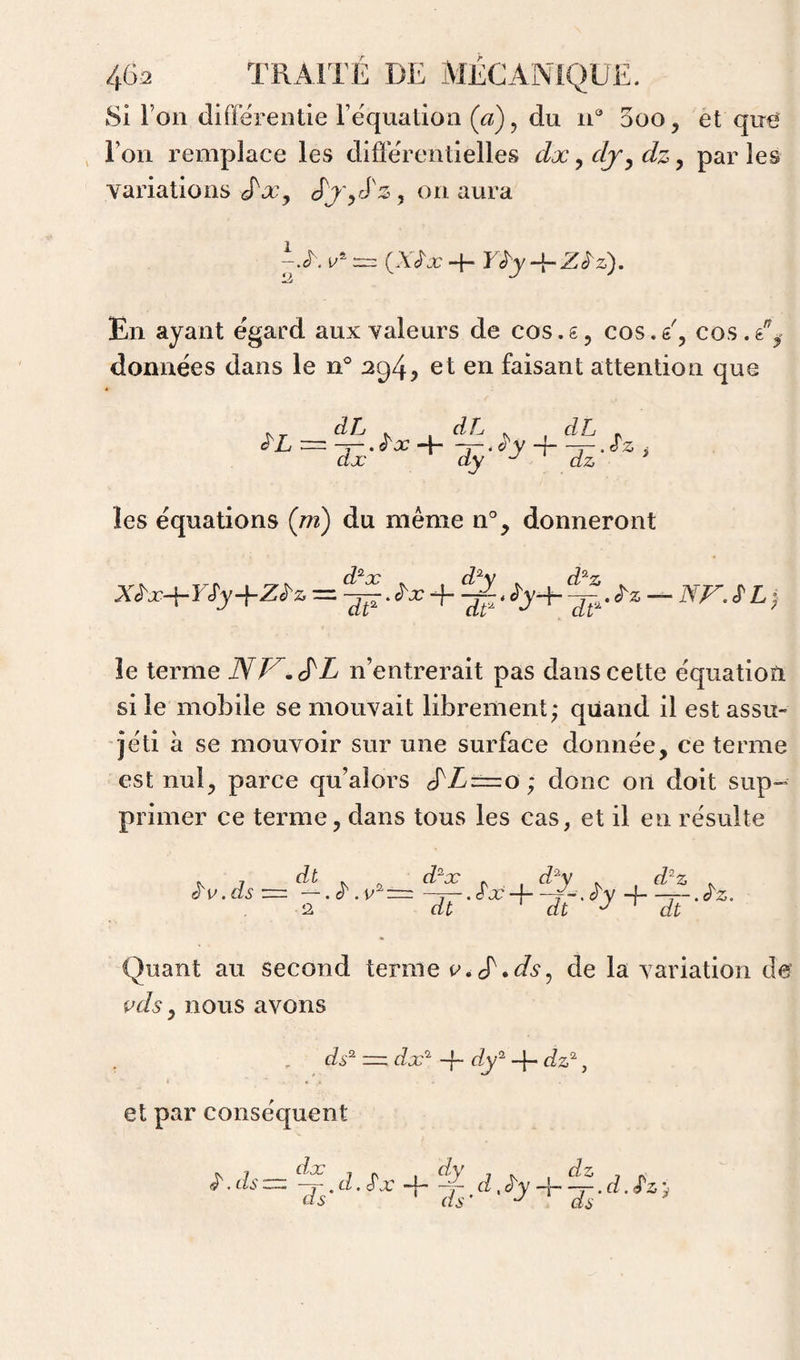 462 TRAITÉ DE MÉCANIQUE.
Si l'on différentie l'équation (a), du n° 300, et que
l'on remplace les différentielles dx, dy, dz, par les
variations δx, δy, δz, on aura
1/2 . δ. v² = (Xδx + Yδy + Zδz).
En ayant égard aux valeurs de cos. ε, cos. ε′, cos. ε″,
données dans le n° 294, et en faisant attention que
δL = dL/dx . δx + dL/dy . δy + dL/dz . δz,
les équations (m) du même n°, donneront
Xδx+Yδy+Zδz = d²x/dt² . δx + d²y/dt² . δy + d²z/dt² . δz — NV. δL;
le terme NV. δL n'entrerait pas dans cette équation
si le mobile se mouvait librement; quand il est assu-
jéti à se mouvoir sur une surface donnée, ce terme
est nul, parce qu'alors δL=0; donc on doit sup-
primer ce terme, dans tous les cas, et il en résulte
δv. ds = dt/2 . δ. v² = d²x/dt . δx + d²y/dt . δy + d²z/dt . δz.
Quant au second terme v. δ. ds, de la variation de
vds, nous avons
ds² = dx² + dy² + dz²,
et par conséquent
δ. ds = dx/ds . d. δx + dy/ds . d. δy + dz/ds . d. δz;